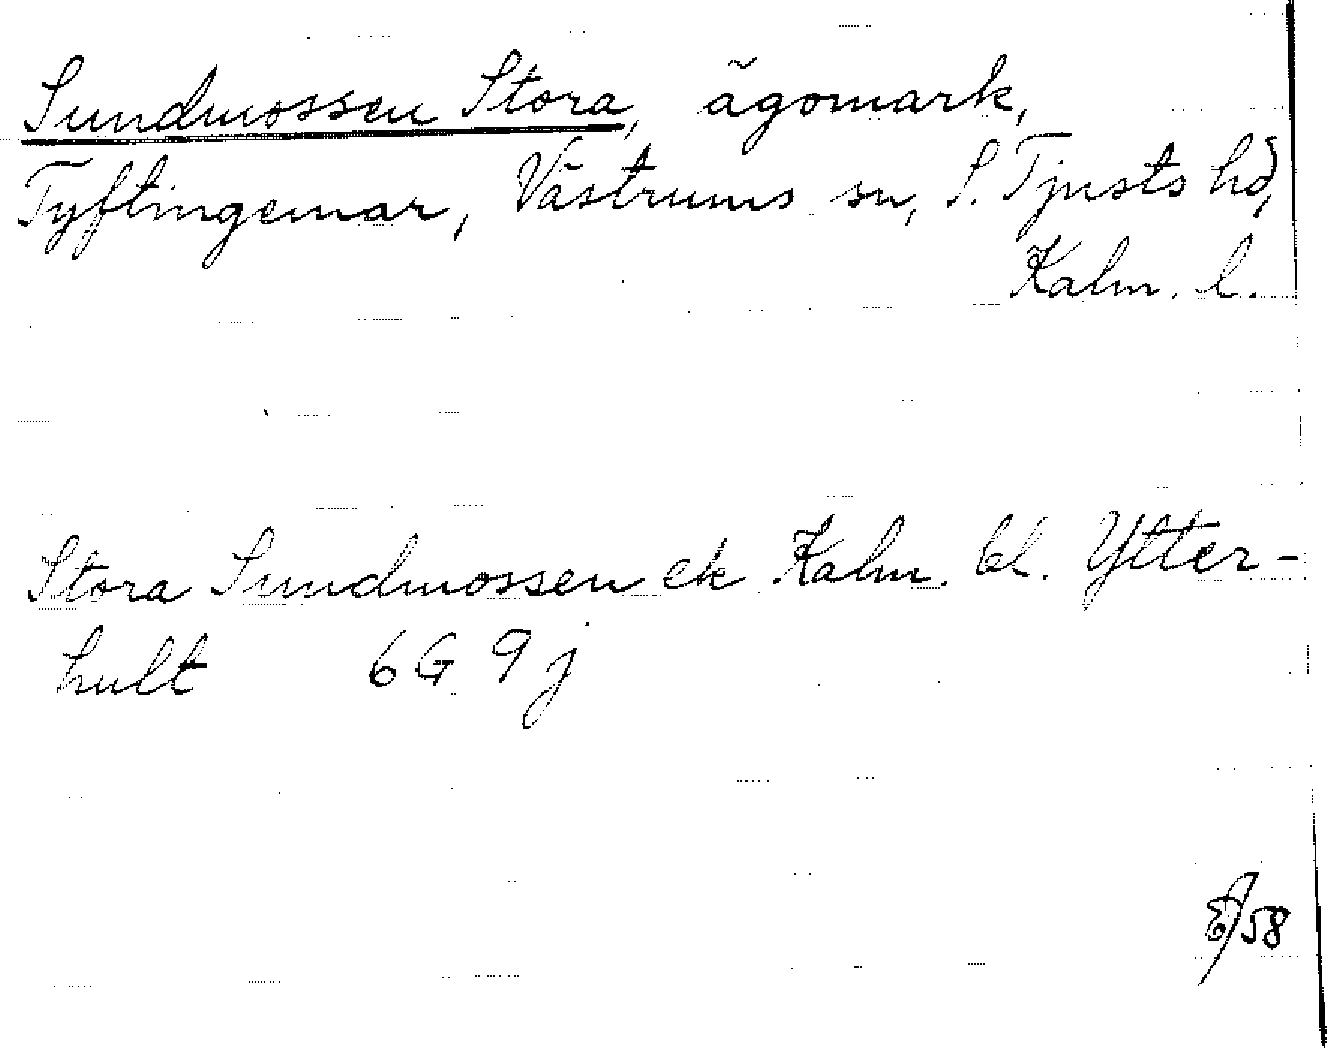 Sundmossen Stora, ägomark,
Tyftingemar, Västrums sn, S. Tjusts hd,
Kalm. l.
Stora Sundmossen ek Kalm. bl. Ytter-
hult 6G 9j
/58